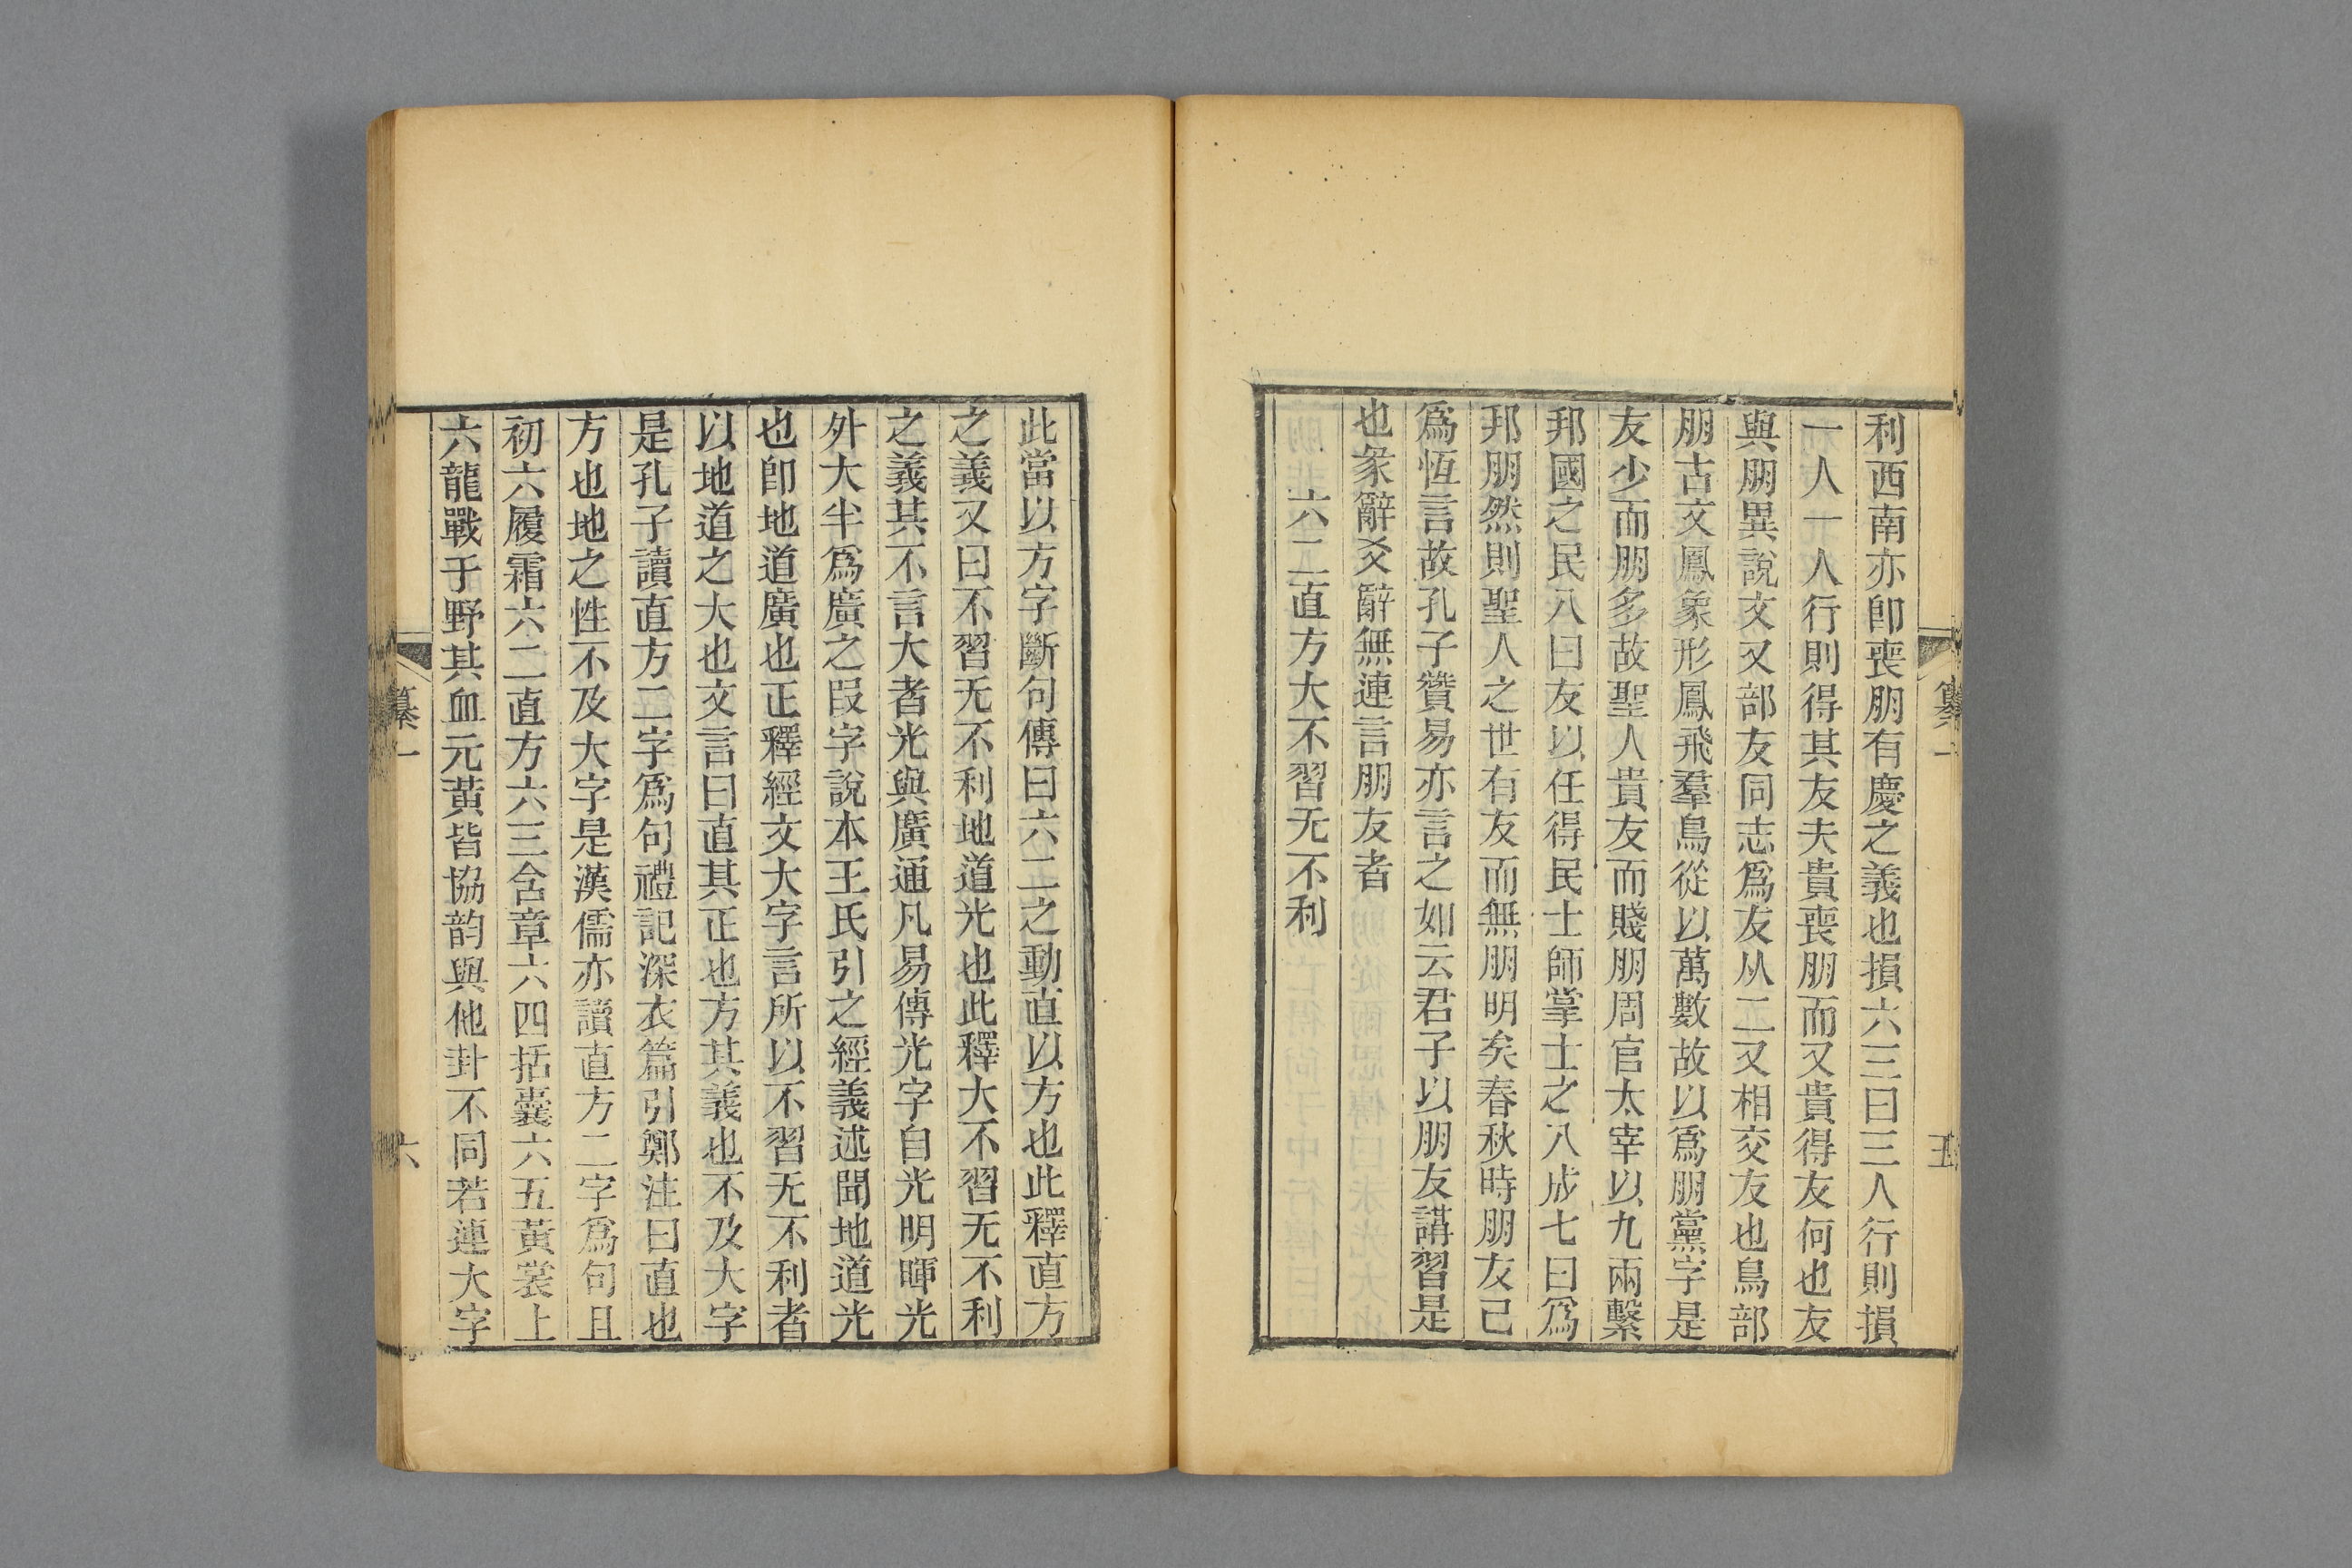 利西南亦卽喪朋有慶之義也損六三曰三人行則損
一人一人行則得其友夫貴喪朋而又貴得友何也友
與朋異說文又部友同志爲友从二又相交友也鳥部
朋古文鳳象形鳳飛羣鳥從以萬數故以爲朋黨字是
友少而朋多故聖人貴友而賤朋周官太宰以九兩繫
邦國之民八曰友以任得民士師掌士之八成七曰爲
邦朋然則聖人之世有友而無朋明矣春秋時朋友已
爲恆言故孔子贊易亦言之如云君子以朋友講習是
也彖辭爻辭無連言朋友者
六二直方大不習无不利
纂一
五
此當以方字斷句傳曰六二之動直以方也此釋直方
之義又曰不習无不利地道光也此釋大不習无不利
之義其不言大者光與廣通凡易傳光字自光明暉光
外大半爲廣之叚字說本王氏引之經義述聞地道光
也卽地道廣也正釋經文大字言所以不習无不利者
以地道之大也文言曰直其正也方其義也不及大字
是孔子讀直方二字爲句禮記深衣篇引鄭注曰直也
方也地之性不及大字是漢儒亦讀直方二字爲句且
初六履霜六二直方六三含章六四括囊六五黃裳上
六龍戰于野其血元黃皆協韵與他卦不同若連大字
纂一
六